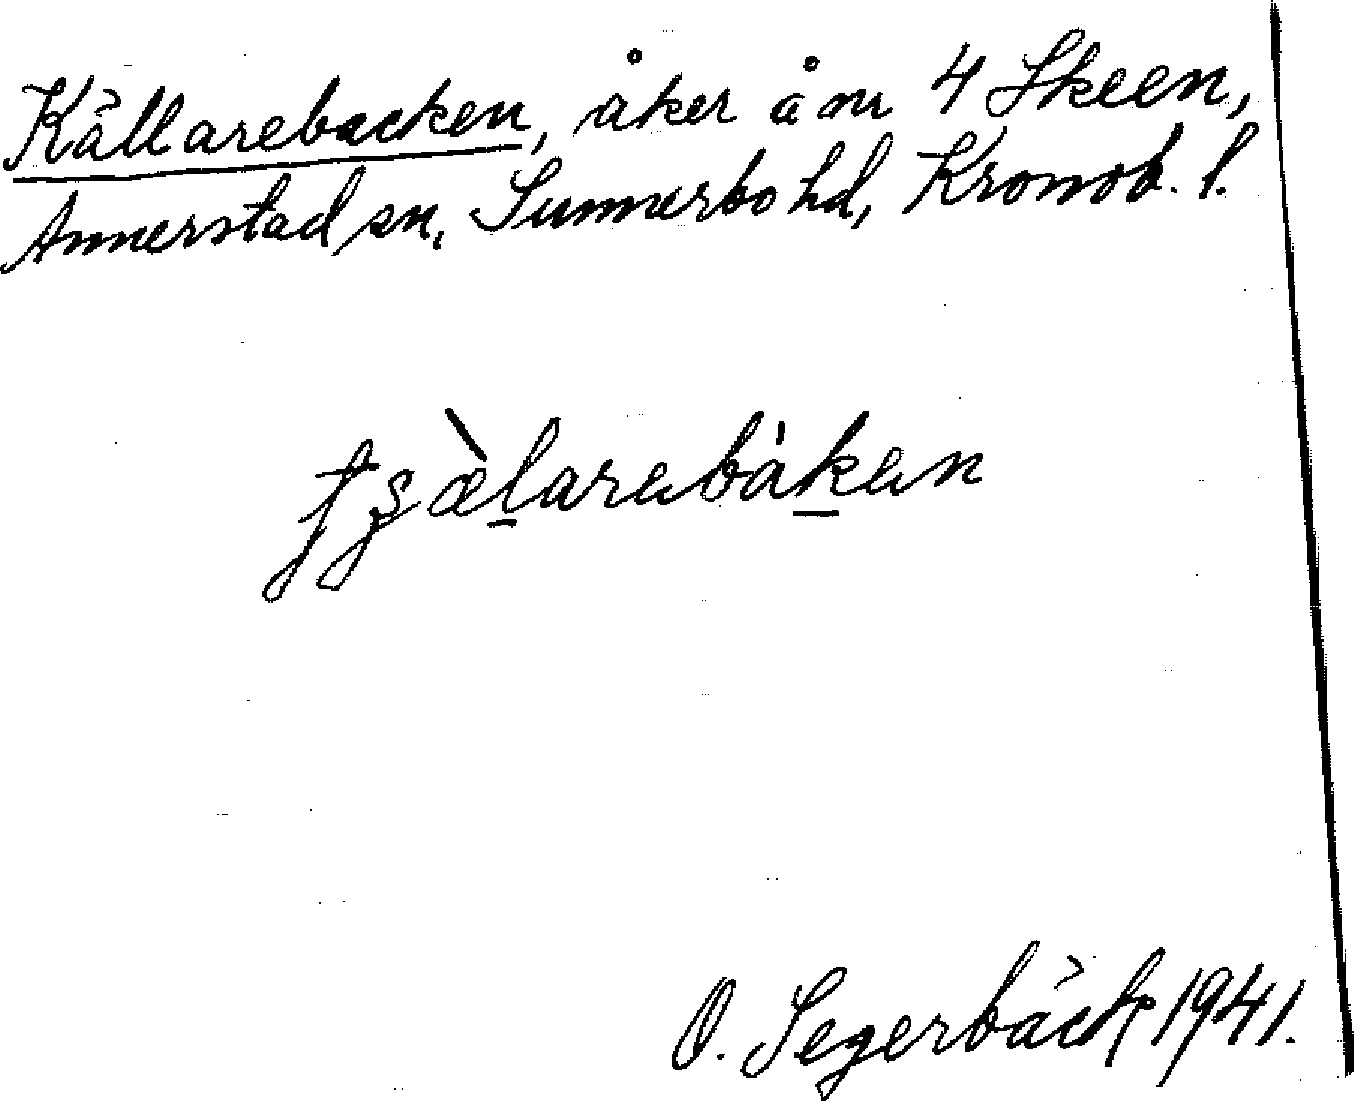 Källarebacken, åker å nr 4 Skeen,
Annerstad sn, Sunnerbo hd, Kronob. l.
O. Segerbäck 1941.